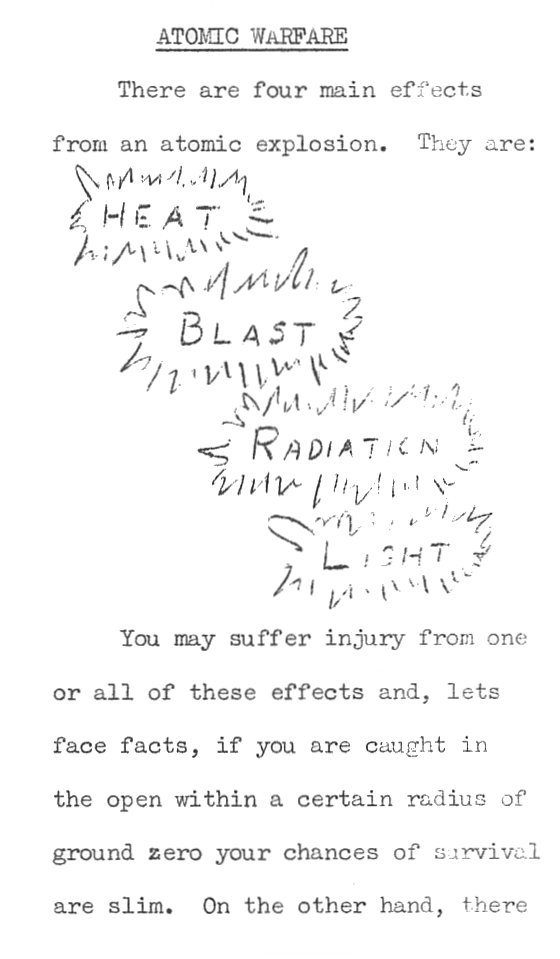 ATOMIC WARFARE
There are four main effects
from an atomic explosion. They are:
HEAT
BLAST
RADIATION
LIGHT
You may suffer injury from one
or all of these effects and, lets
face facts, if you are caught in
the open within a certain radius of
ground zero your chances of survival
are slim. On the other hand, there